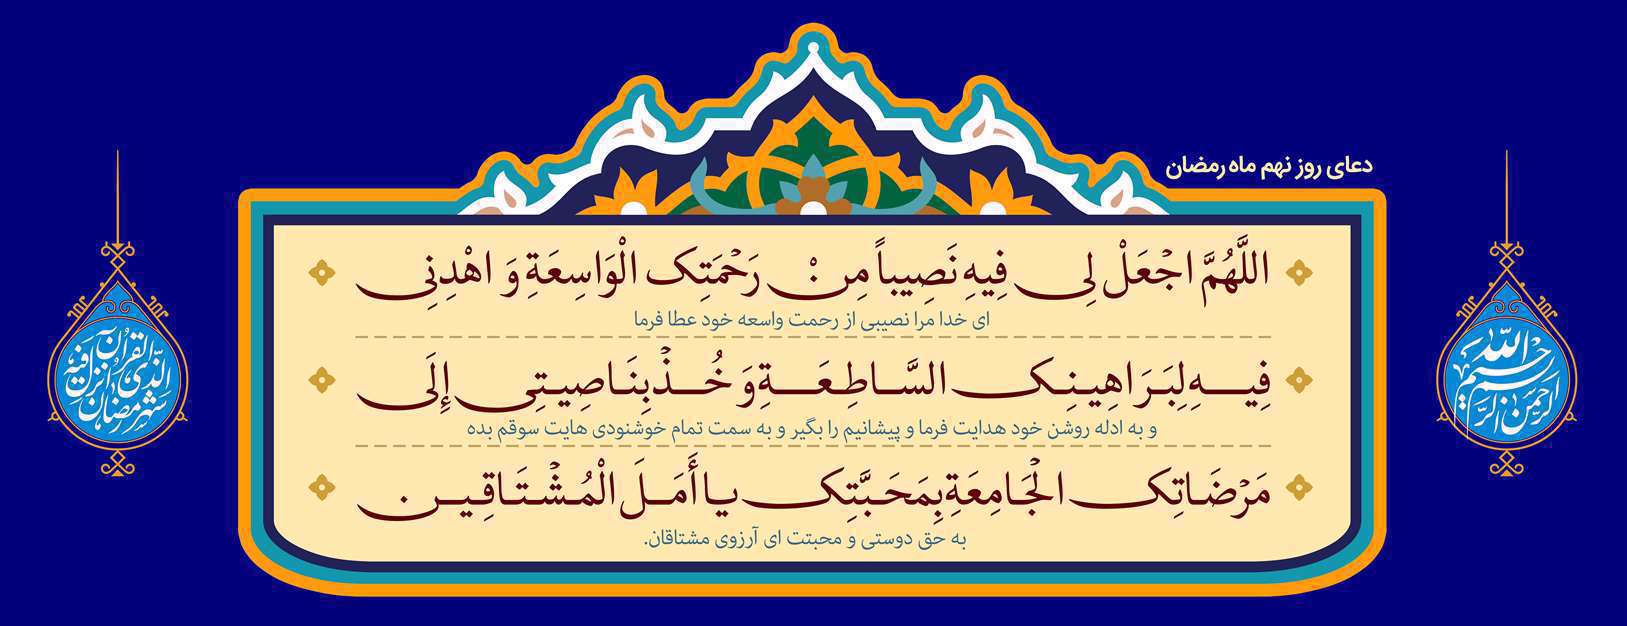 دعای روز نهم ماه رمضان
اللَّهُمَّ اجْعَلْ لِی فِیهِ نَصِیباً مِن رَحْمَتِکَ الْوَاسِعَةِ وَ اهْدِنِی
ای خدا مرا نصیبی از رحمت واسعه خود عطا فرما
فِیهِ لِبَرَاهِینِکَ السَّاطِعَةِ وَ خُذْ بِنَاصِیَتِی إِلَى
و به ادله روشن خود هدایت فرما و پیشانیم را بگیر و به سمت تمام خوشنودی هایت سوقم بده
مَرْضَاتِکَ الْجَامِعَةِ بِمَحَبَّتِکَ یا أَمَلَ الْمُشْتَاقِین
به حق دوستی و محبتت ای آرزوی مشتاقان.
بسم الله الرحمن الرحیم
شهر رمضان الذی انزل فیه القرآن